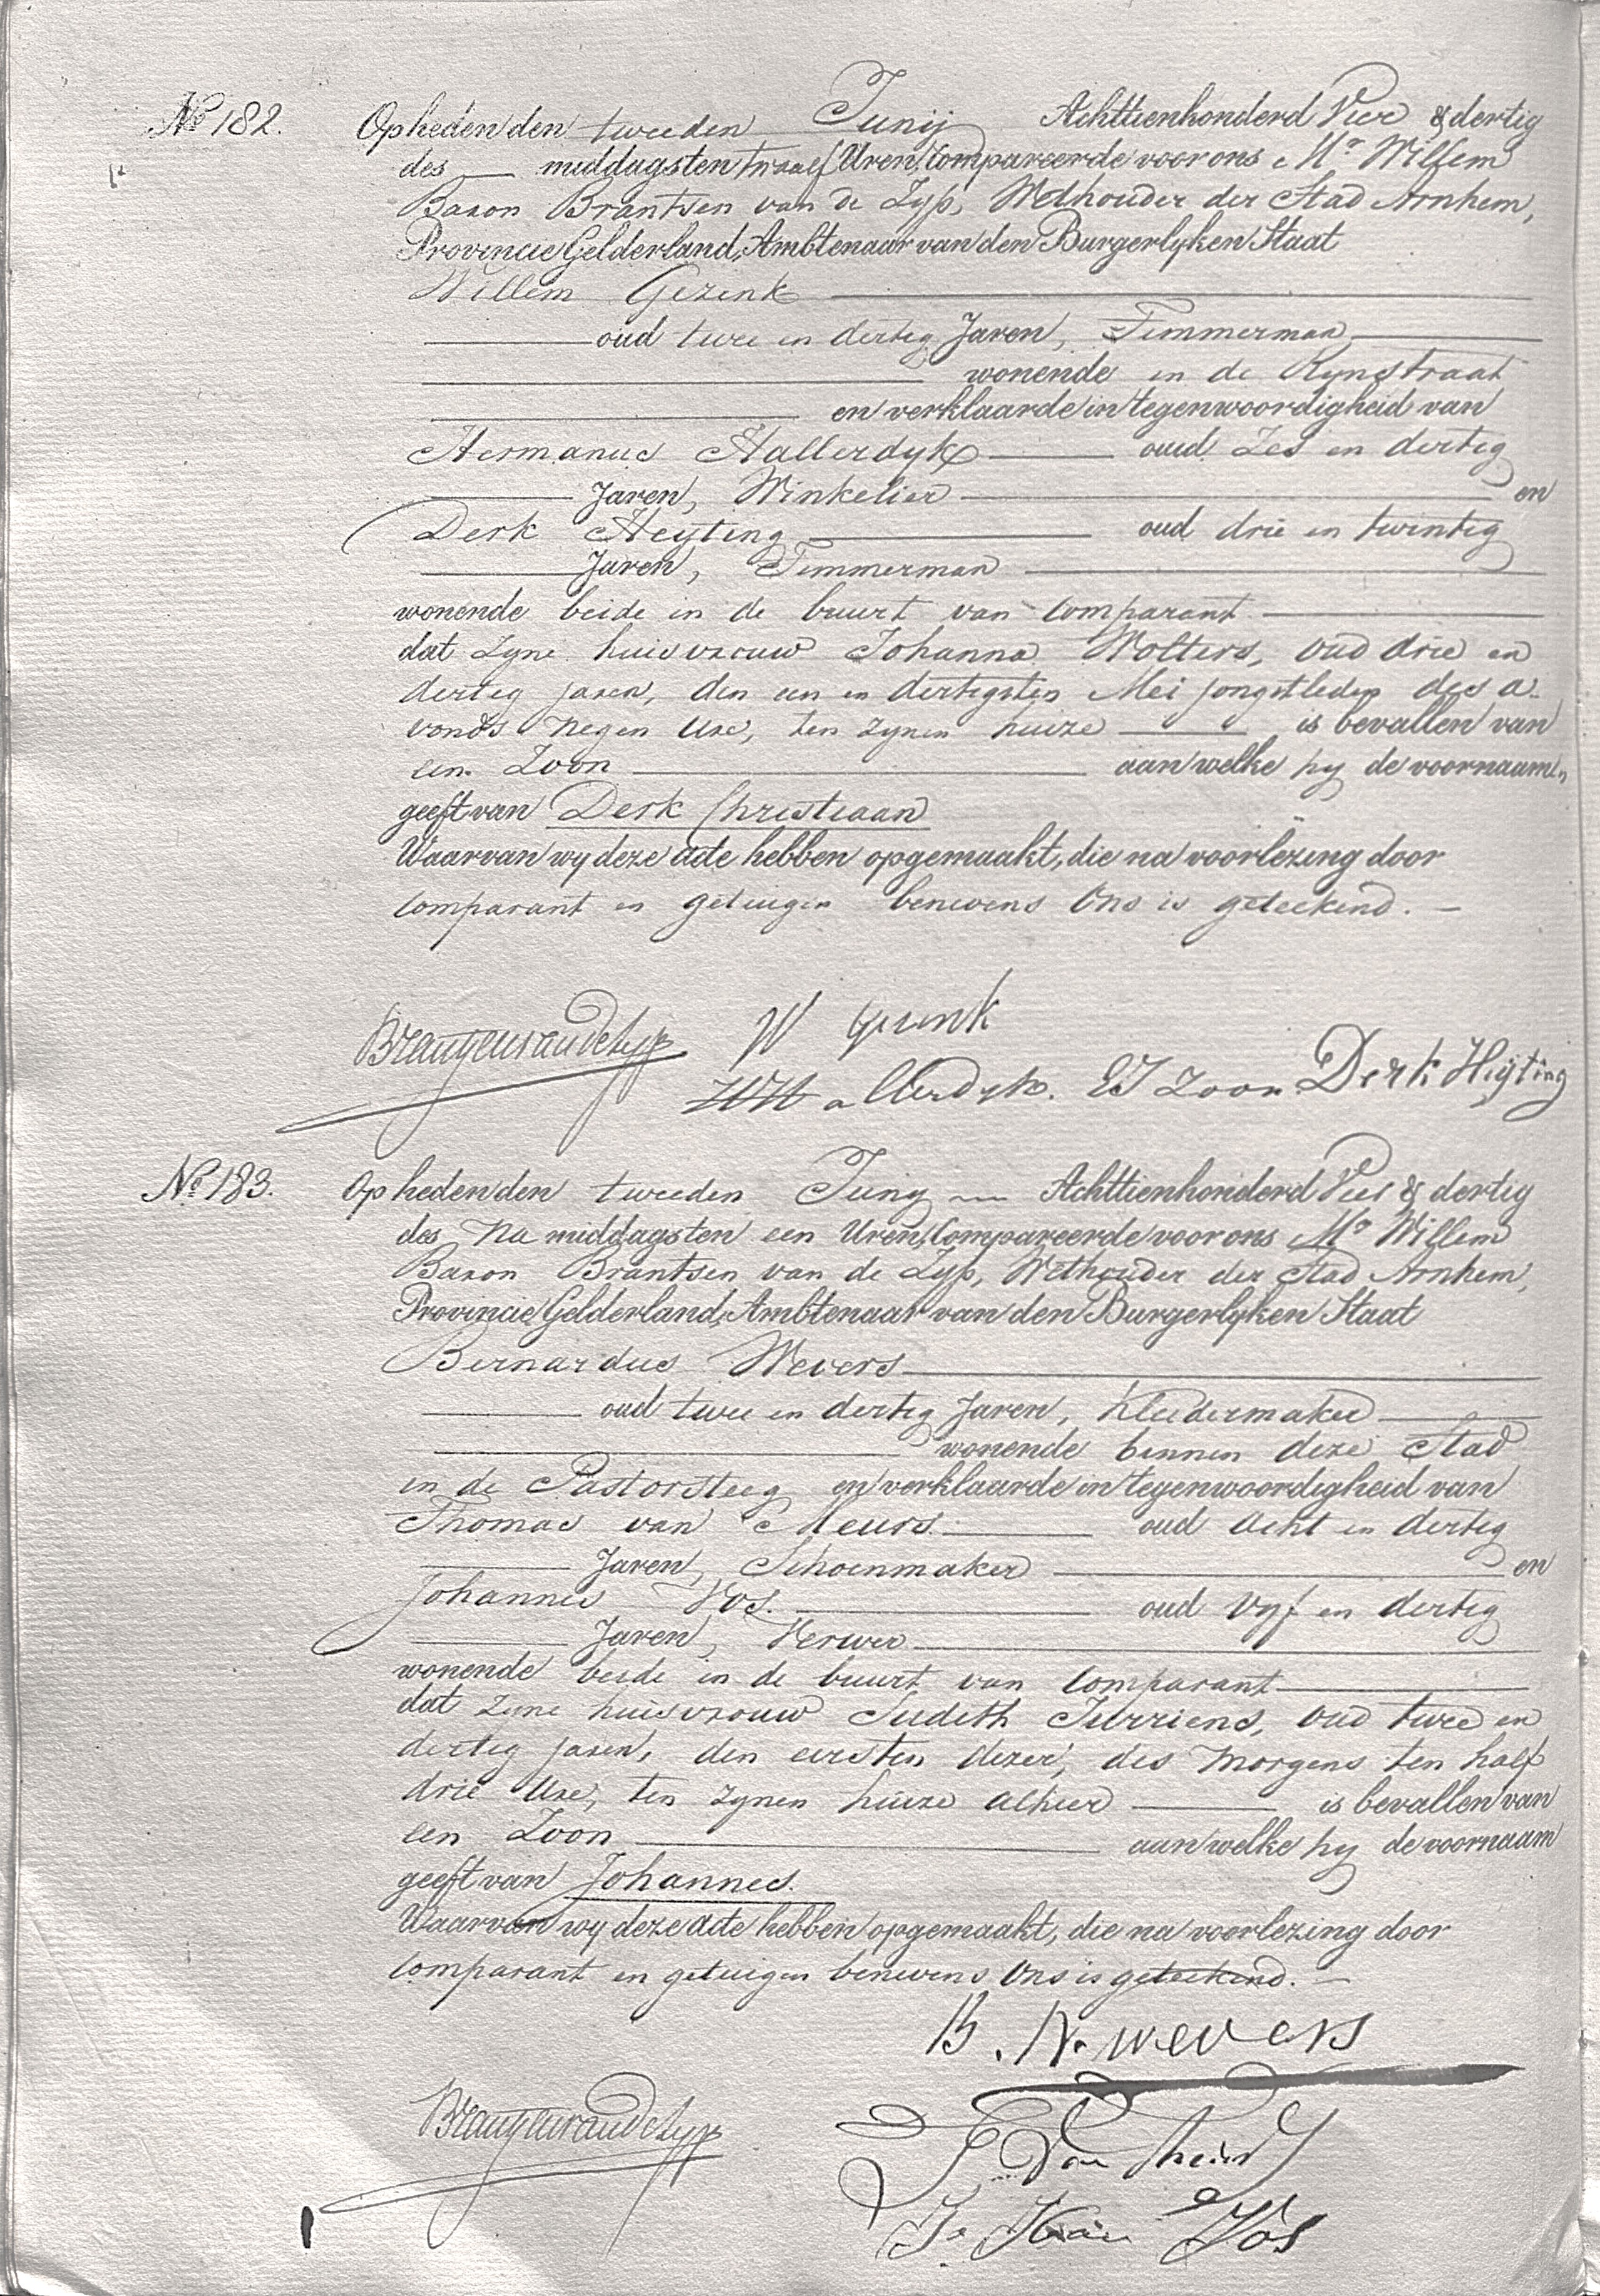 No 182. Op heden den tweeden Junij Achttienhonderd Vier & dertig
des middags ten twaalf Uren, Compareerde voor ons Mr Willem
Baron Brantsen van de Zyp, Wethouder der Stad Arnhem,
Provincie Gelderland, Ambtenaar van den Burgerlyken Staat
Willem Gerink
oud twee en dertig Jaren, Timmerman
wonende in de Rynstraat
en verklaarde in tegenwoordigheid van
Hermanus Hallerdyk oud Zes en dertig
Jaren, Winkelier en
Derk Heyting oud drie en twintig
Jaren, Timmerman
wonende beide in de buurt van Comparant
dat Zyne huisvrouw Johanna Wolters, oud drie en
dertig jaren, den een en dertigsten Mei jongstleden des a-
vonds Negen Ure, ten Zynen huize is bevallen van
een Zoon aan welke hy de voornaamen
geeft van Derk Christiaan
Waarvan wy deze acte hebben opgemaakt, die na voorlezing door
Comparant en getuigen benevens Ons is geteekend.
Brantsen van de Zyp W Gerink
HW allerdyk. EJ Zoon Derk Hijting
No 183. Op heden den tweeden Juny Achttienhonderd Vier & dertig
des Na middags ten een Uren, Compareerde voor ons Mr Willem
Baron Brantsen van de Zyp, Wethouder der Stad Arnhem,
Provincie Gelderland, Ambtenaar van den Burgerlyken Staat
Bernardus Wevers
oud twee en dertig Jaren, Kleedermaker
wonende binnen deze Stad
in de Pastorsteeg en verklaarde in tegenwoordigheid van
Thomas van Meurs oud Acht en dertig
Jaren, Schoenmaker en
Johannes Vos. oud Vyf en dertig
Jaren, Verwer
wonende beide in de buurt van Comparant
dat Zyne huisvrouw Judith Jurriens, oud twee en
dertig jaren, den eersten dezer, des Morgens ten half
drie Ure, ten Zynen huize alhier is bevallen van
een Zoon aan welke hy de voornaam
geeft van Johannes.
Waarvan wy deze acte hebben opgemaakt, die na voorlezing door
Comparant en getuigen benevens Ons is geteekend.
B. N. wevers
Brantsen van de Zyp
Van
Vos